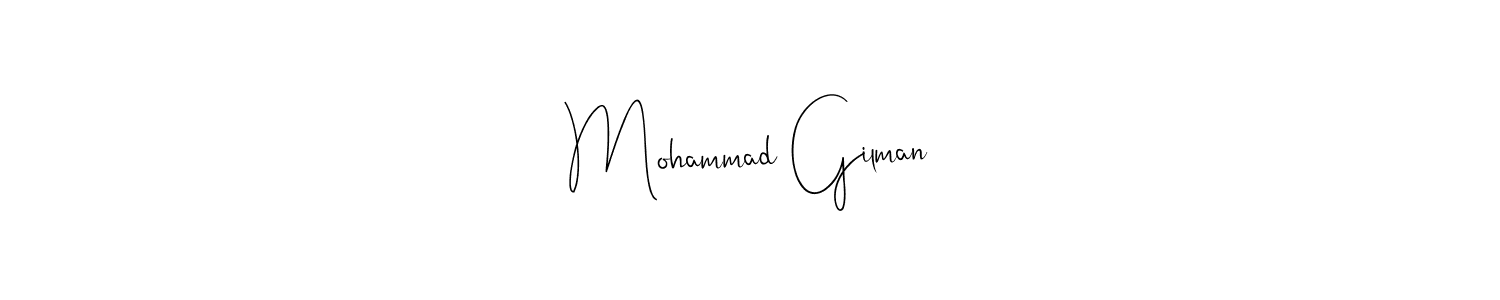 Mohammad Gilman